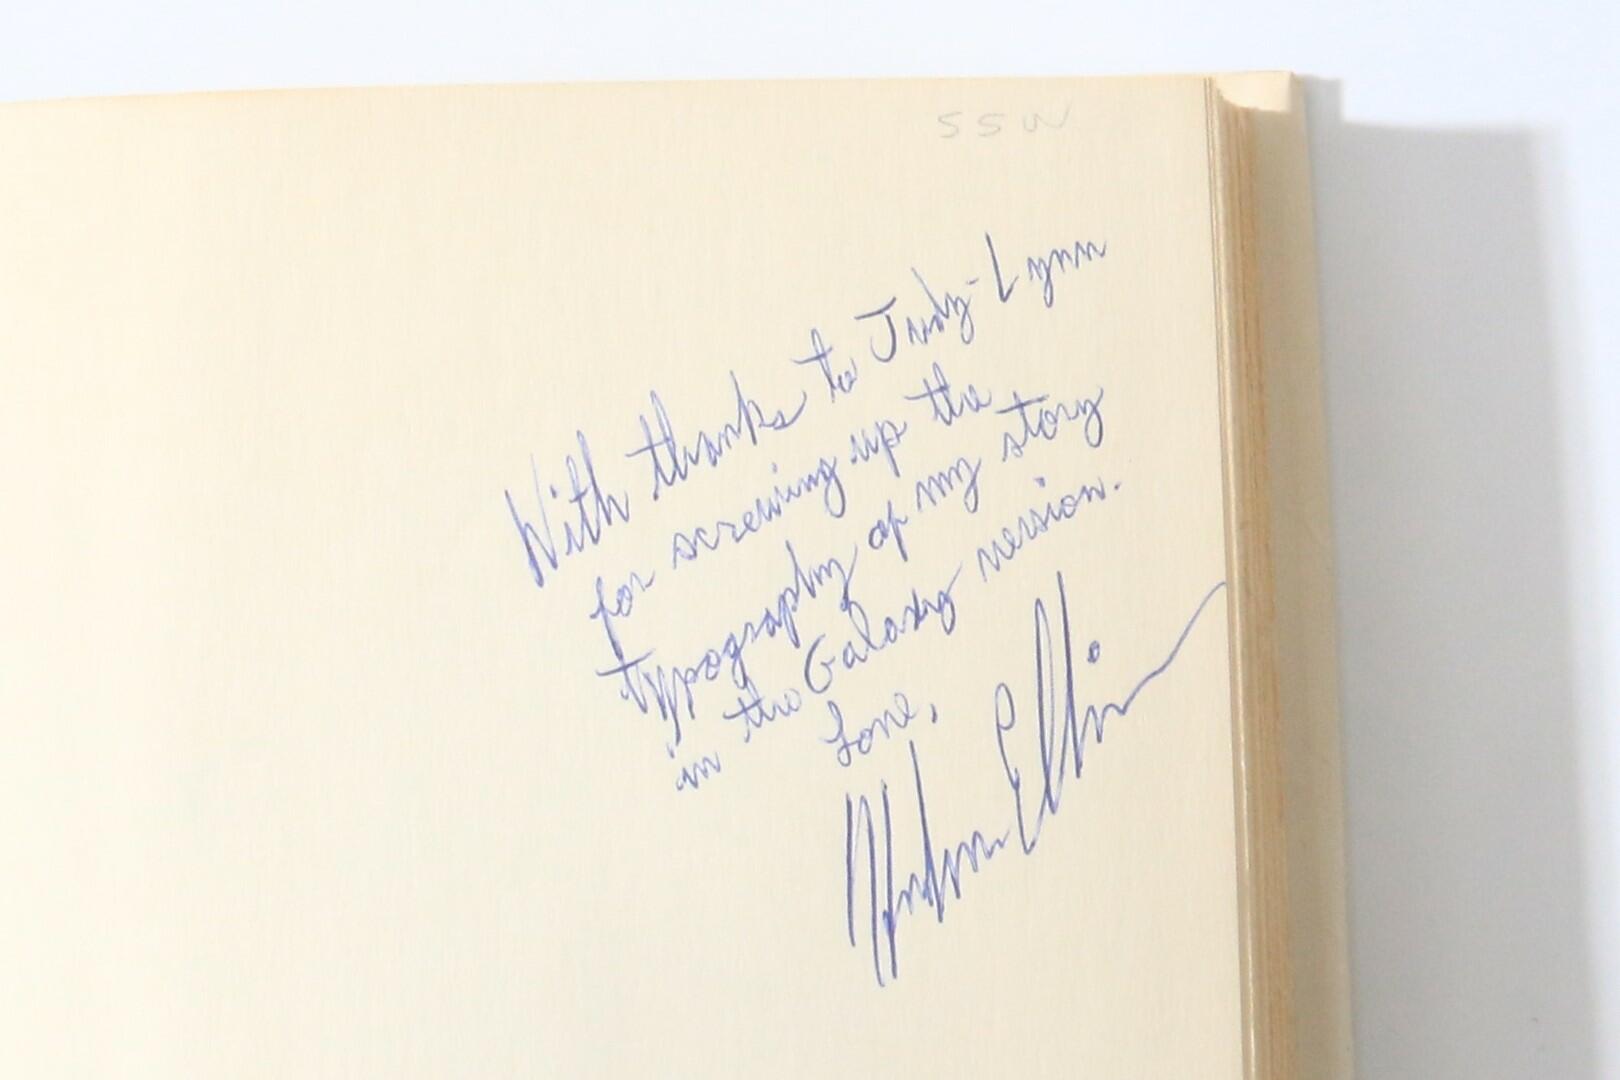 SSW
With thanks to Judy-Lynn
for screwing up the
typography of my story
in the Galaxy version.
Love,
Harlan Ellison